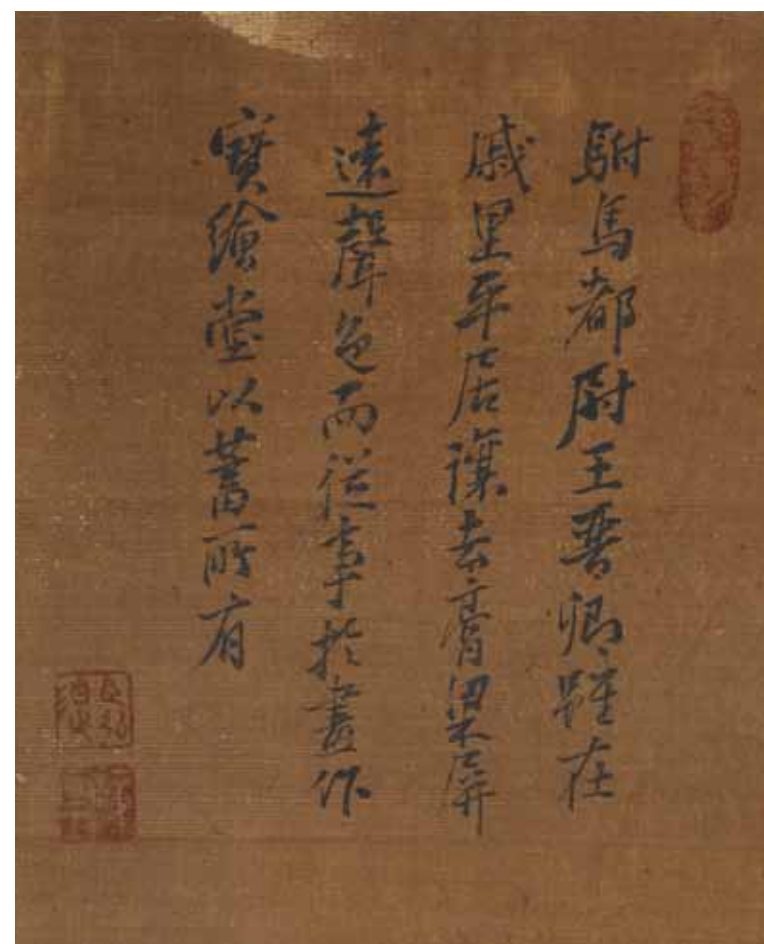 駙馬都尉王晋卿雖在
戚里平居讓去膏粱屏
遠聲色而從事於畫作
寶繪堂以蓄所有